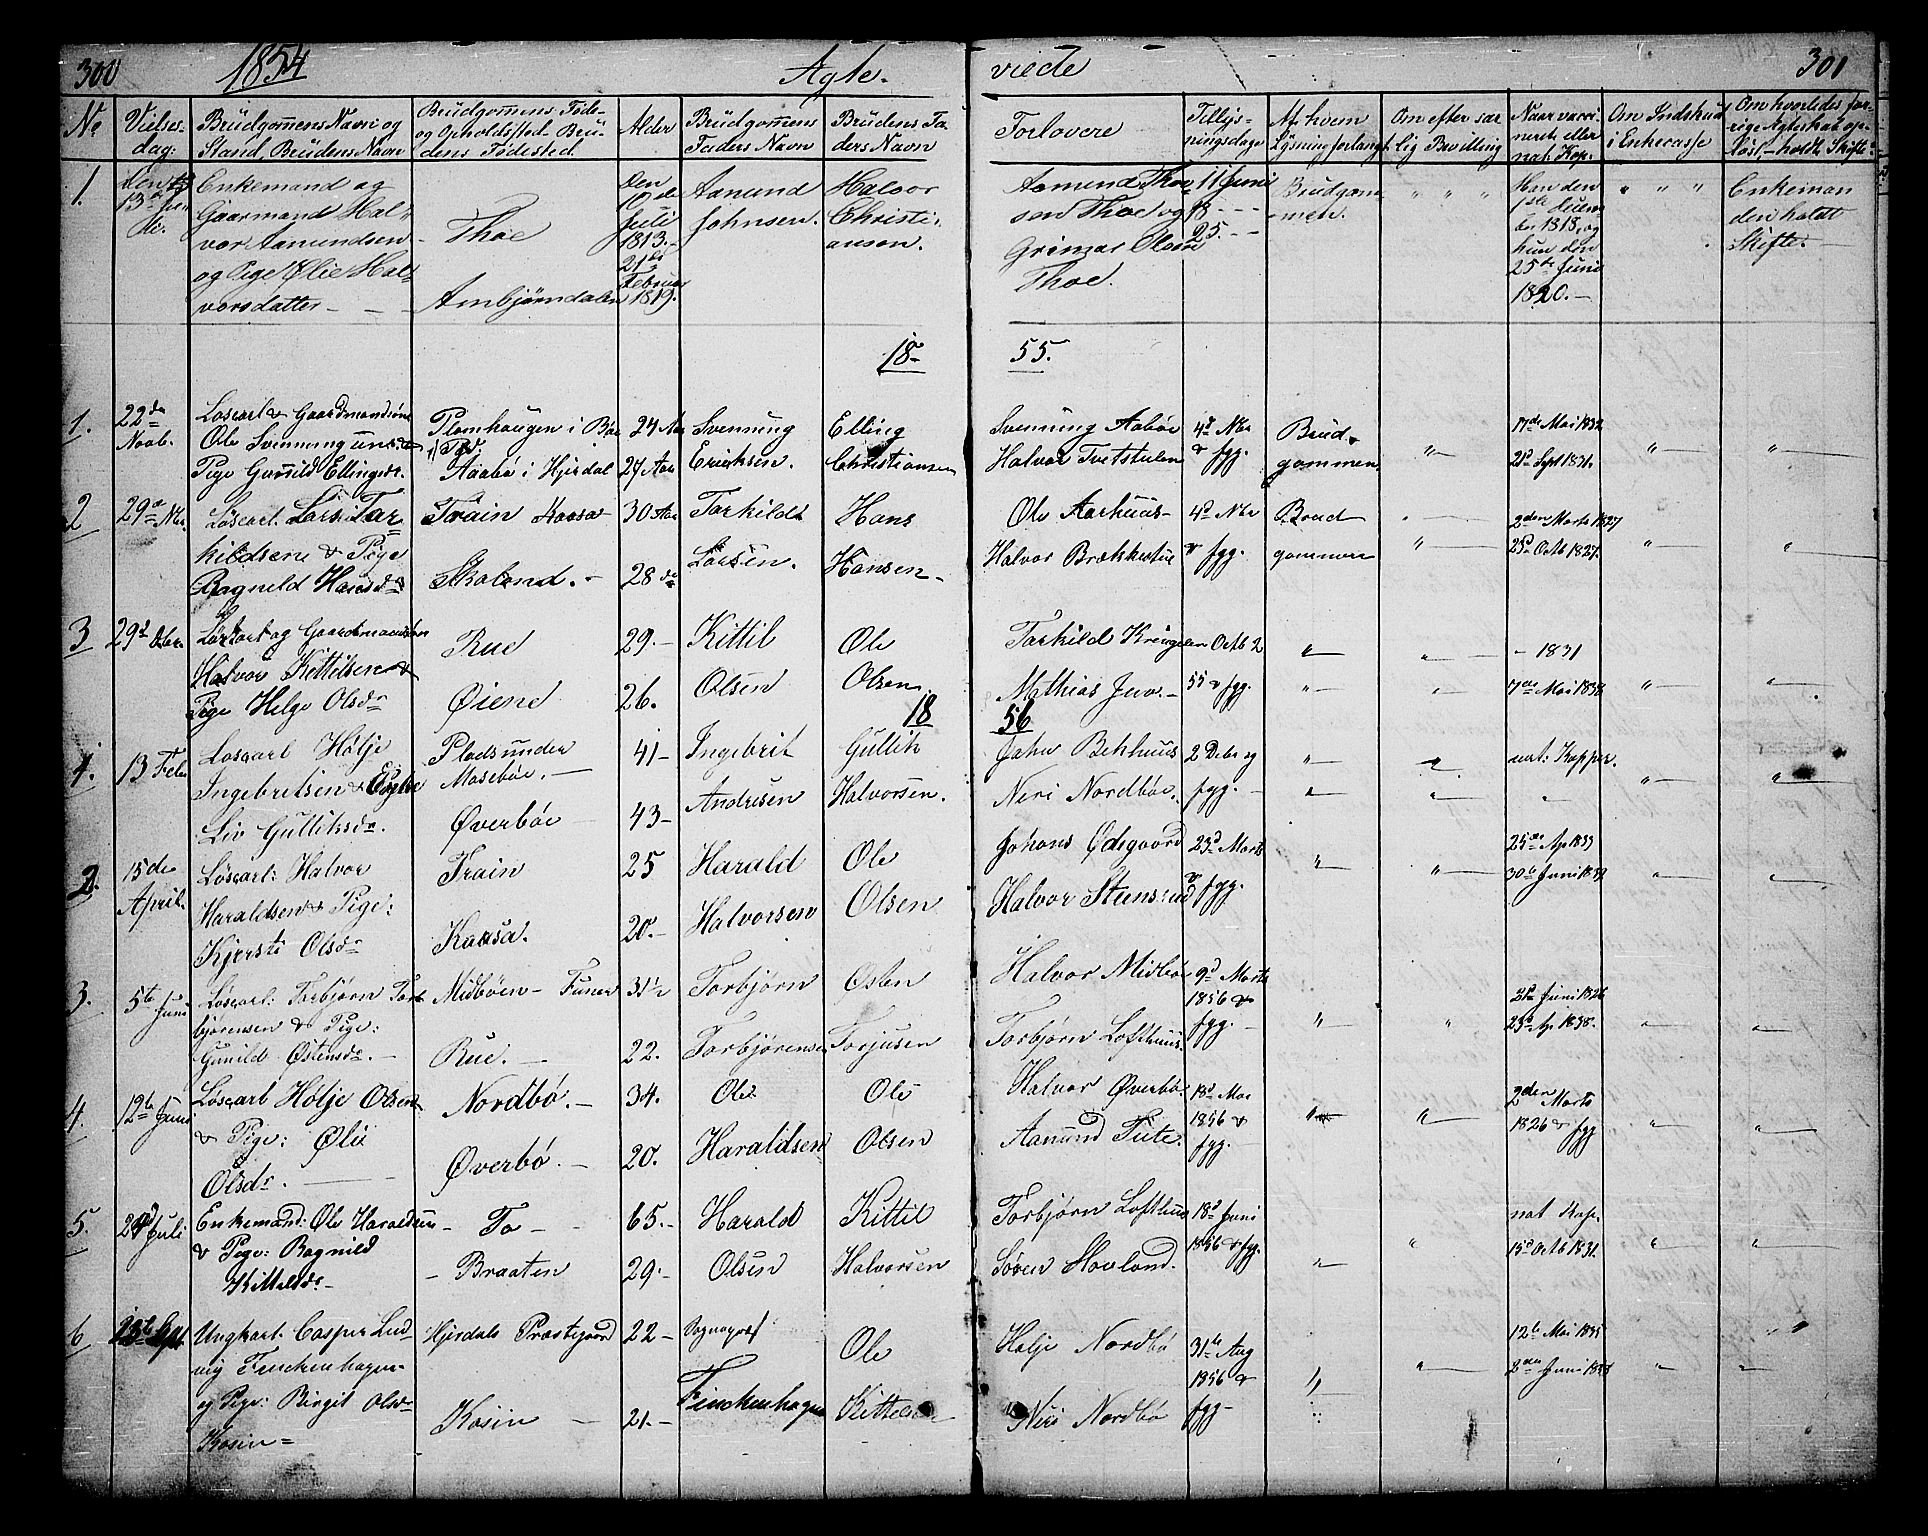 300
1854
Ægte-
viede
301
No
Vielses-
dag:
Brudgommens Navn og
Stand, Brudens Navn
Brudgommens Føde-
og Opholdssted. Bru-
dens Fødested.
Alder
Brudgommens
Faders Navn
Brudens Fa-
ders Navn
Forlovere
Tillys-
ningsdage
Af hvem
Lysning forlangt
Om efter sær
lig Bevilling
Naar vacci-
neret eller
nat. Kop.
Om Indskud
i Enkecasse
Om hvorledes for-
rige Ægteskab op-
løst, - holdt Skifte
1.
13de
Enkemand og
Gaarmand Hal-
vor Aamundsen
og Pige Ølie Hal-
vorsdatter - -
Thoe
Ambjørndalen
den
10de
Juli
1813.-
21de
Februar
1819.
Aamund
Johnsen.
Halvor
Christi-
ansen.
Aamund Thoe
sen Thoe og
Grimar Olsen
Thoe.
11 Juni
18 - - -
25. - -
Brudgom-
men.
" " "
Han den
1ste Decem
ber 1818, og
hun den
25de Juni
1820.-
" " "
Enkeman
den holdt
Skifte.-
18
55.
1.
22de
Novb.
Løscarl & Gaardmandsøn
Ole Svenningsen &
Pige Gunnild Ellingsdr.
Plomhaugen i Bøe
Aabø i Hjerdal
24 Aar
27 Aar
Svenning
Eriksen.
Elling
Christiansen
Svenning Aabøe
Halvor Tvetstulen
4d Nbr
& fgg.
Brud-
gommen.
"
7de Mai 1832
21d Sept 1831.
"
"
2
29d Nbr
Løscarl. Lars Tar
kildsen & Pige
Ragnild Hansdr
Train Kaasa
Skoland. -
30 Aar
28 do
Tarkild
Larsen.
Hans
Hansen-
Ole Aarhuus-
Halvor Brækkestue
4d Nbr
& fgg.
Brud
gommen
"
2den Marts 1827
25d Octb 1827.
"
"
3
29d
Løscarl og Gaardmandsøn
Halvor Kittilsen &
Pige Helge Olsdr
Rue
Øiene
29.-
26.
Kittil
Olsen
Ole
Olsen
18
56
Tarkild Krengelen
Mathias Juv.-
Octb 2
55 & fgg.
"
"
- 1831
7de Mai 1838.
"
"
1.
13 Feb
Løscarl Høljе
Ingebretsen &
Liv Gulliksdr.
Plads under
Mosebøe. -
Øverbøe
41-
43-
Ingebrit
Andresen
Gullik
Halvorsen.
John Bekhuus
Neri Nordbøe.
2 Debr og
fgg.-
"
"
nat: Kopper.
"
"
"
2.
15de
April.
Løscarl: Halvor
Haraldsen & Pige:
Kjersti Olsdr
Train
Kaasa.
25
20.-
Harald
Halvorsen
Ole
Olsen
Johans Ødegaard
Halvor Steensrud
23d Marts
& fgg.
"
"
25de Ap 1833
30te Juni 1839
"
"
3.
5te Juni
Løscarl: Torbjørn Tor
bjørensen & Pige:
Gunild Østensdr. -
Midbøen - Tuner
Rue. -
31½
22.
Torbjørn
Torbjørensen
Østen
Torjusen
Halvor Midbøe
Torbjørn Lofthuus.
9d Marts
1856 &
fgg. -
"
"
21d Juni 1826
23d Ap 1838.
"
"
4.
12te Juni
Løscarl Hølje Olsen
& Pige: Ølie
Olsdr.
Nordbø. -
Øverbø. -
34.
20.
Ole
Haraldsen
Ole
Olsen
Halvor Øverbø
Aanund Tute.
18d Mai
1856 &
fgg.
"
"
2den Marts
1826 & fgg
"
"
5.
Juli
Enkemand: Ole Haraldsen
& Pige: Ragnild
Kittelsdr-
- To - -
- Braaten
65.-
29.-
Harald
Olsen
Kittil
Halvorsen
Torbjørn Lofthuus
Søren Hovland.
18d Juni
1856 & fgg.
"
"
nat Kop.
15d Octb 1831.
"
"
6
Sept.
Ungkarl. Casper Lud-
vig Finckenhagen
og Pige: Birgit Olsdr
Kosin=
Hjerdals Præstegaard
Kosin
22-
21.-
Sognepræst
Finckenhagen
Ole
Kittelsen
Holje Nordbø
Neri Nordbø
31te Aug
1856 &
fgg-
"
"
12te Mai 1835
2den Juni
"
"